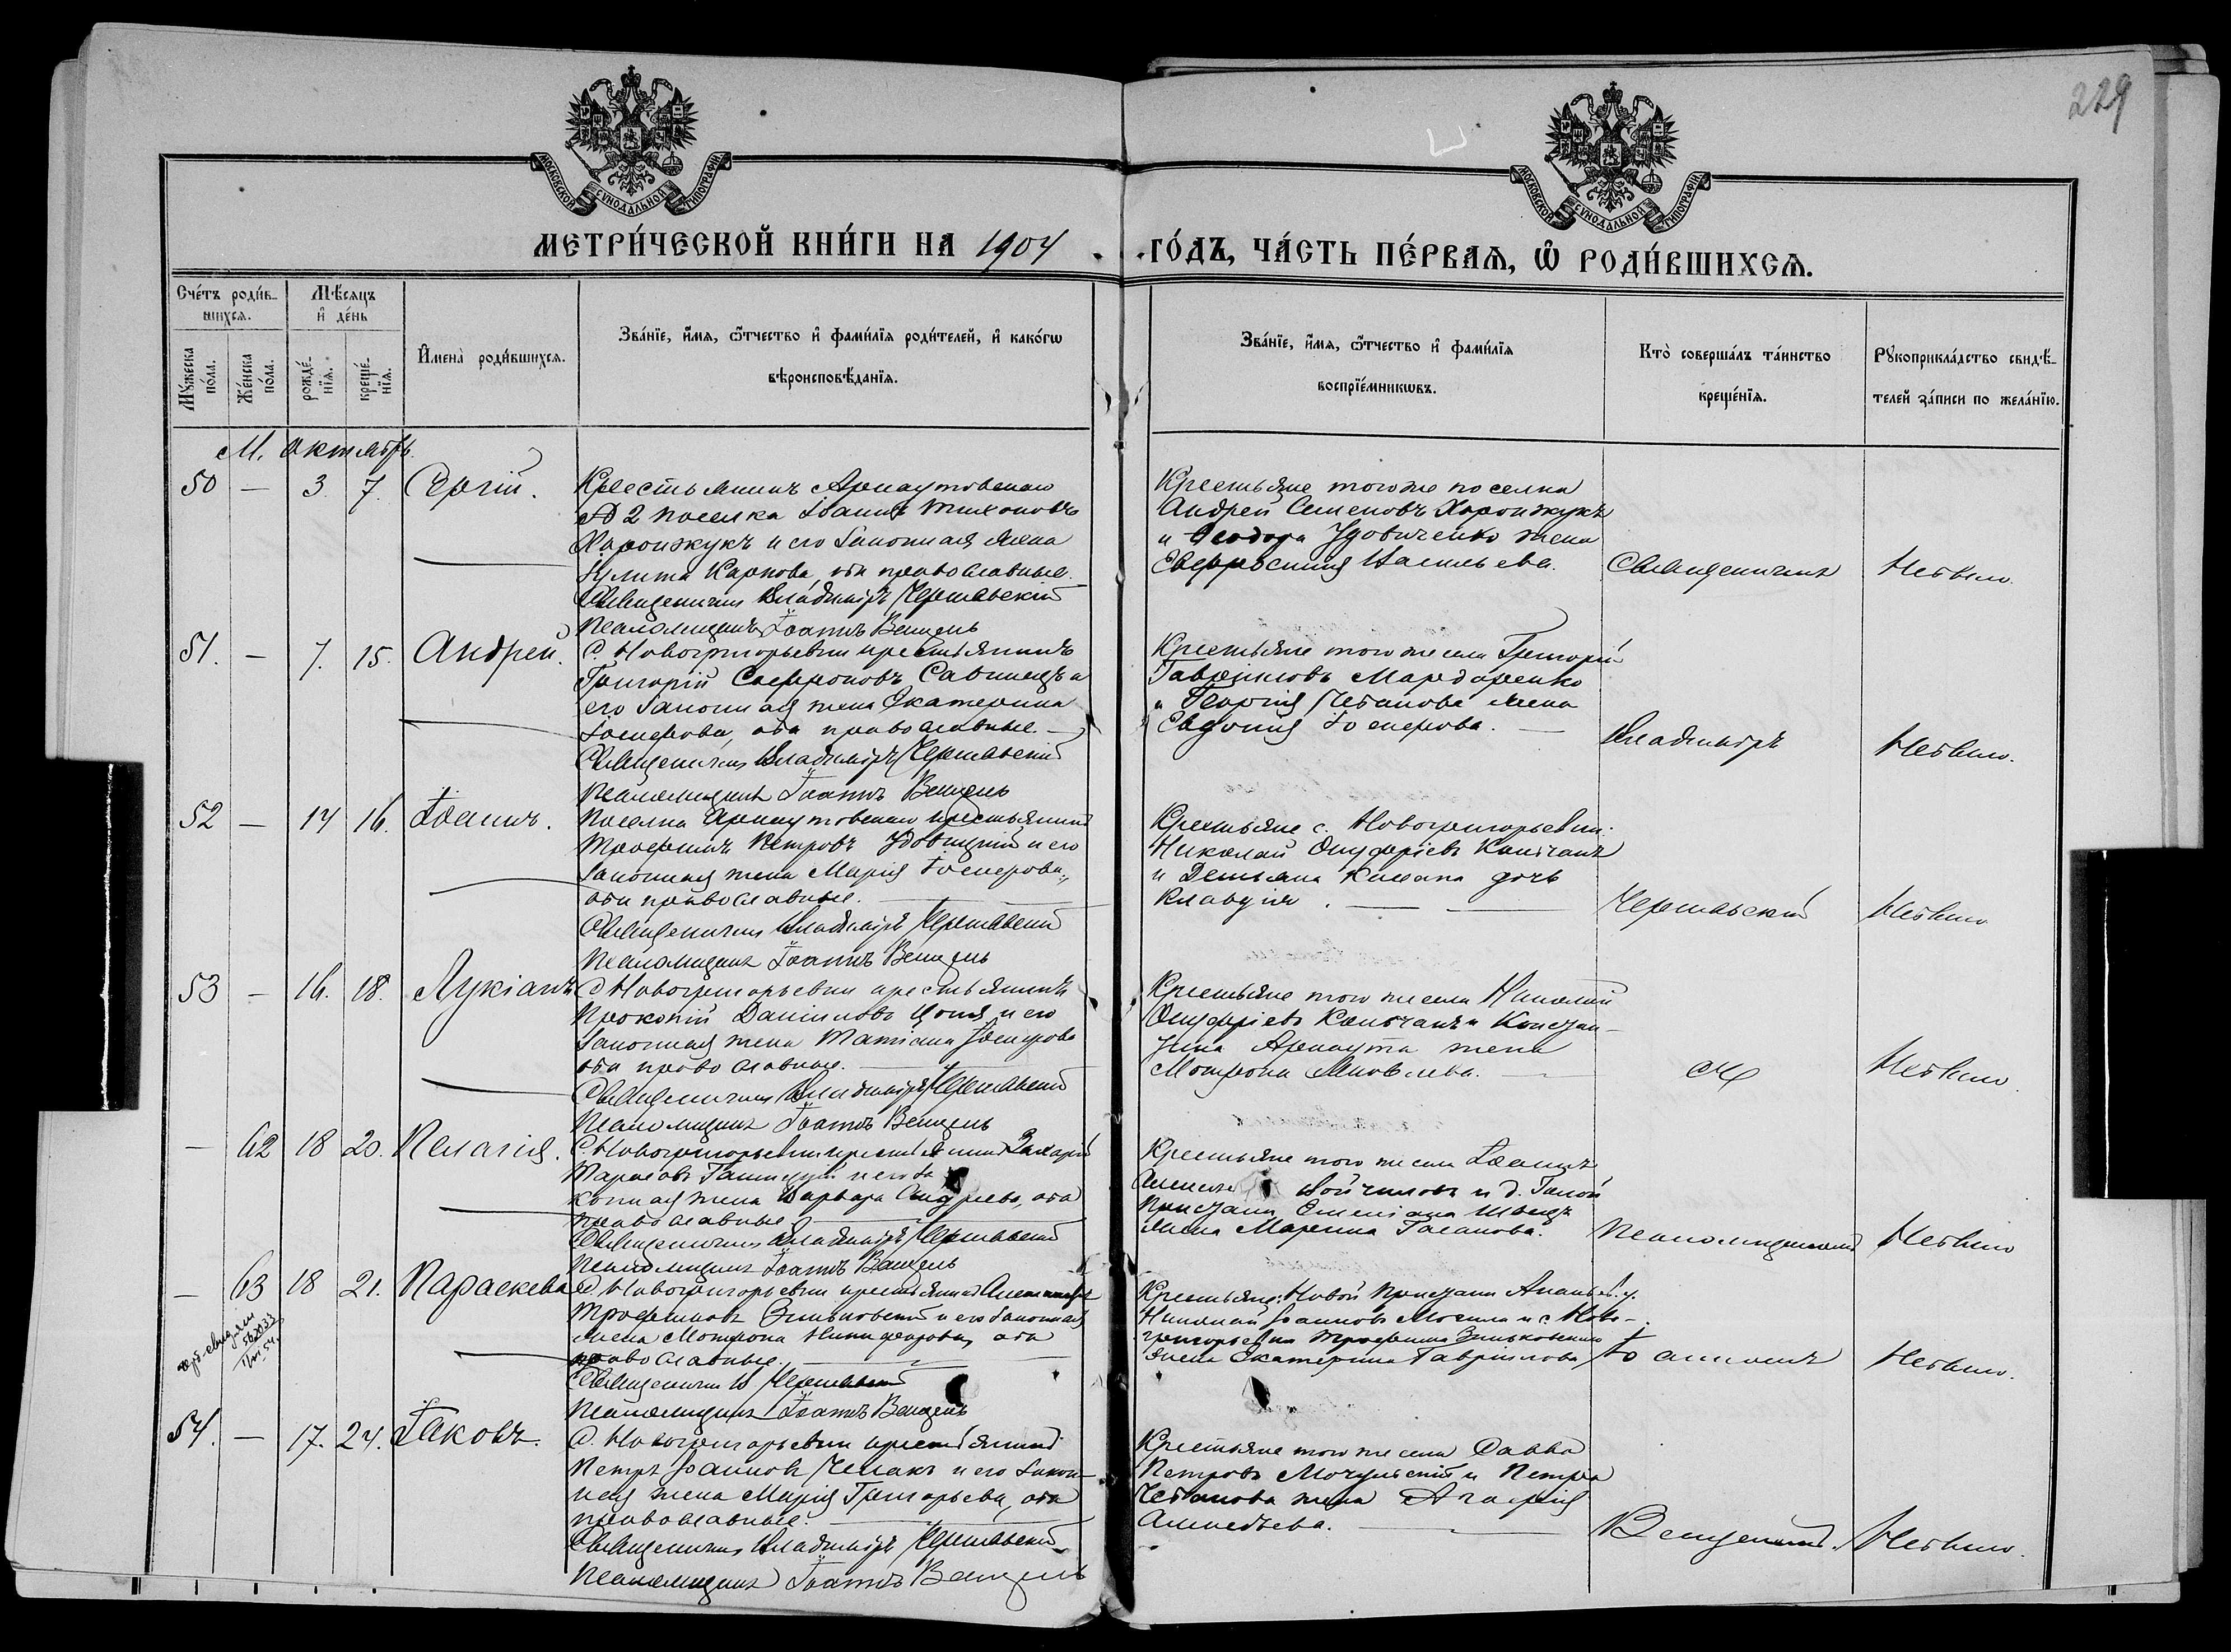 229
МОСКОВСКОЙ СѴНОДАЛЬНОЙ ТИПОГРАФІИ
МОСКОВСКОЙ СѴНОДАЛЬНОЙ ТИПОГРАФІИ
МЕТРИ́ЧЕСКОЙ КНИ́ГИ НА 1904 ГО́ДЪ, ЧА́СТЬ ПЕ́РВАѦ, Ѡ҆ РОДИ́ВШИХСѦ.
Сче́тъ роди́в-
шихсѧ.
Мꙋ́жеска по́ла.
Же́нска по́ла.
Мѣ́сѧцъ и҆ де́нь
рожде́-
нїѧ.
креще́-
нїѧ.
И҆мена̀ роди́вшихсѧ.
Зва́нїе, и҆́мѧ, ѻ҆́тчество и҆ фами́лїѧ роди́телей, и҆ како́гѡ
вѣроисповѣ́данїѧ.
Зва́нїе, и҆́мѧ, ѻ҆́тчество и҆ фами́лїѧ
воспрїе́мникѡвъ.
Кто̀ соверша́лъ та́инство
креще́нїѧ.
Рꙋкоприкла́дство свидѣ́-
телей за́писи по жела́нїю.
М. Октябрь.
50 — 3. 7. Сергій.
Крестьянинъ Арнаутовскаго
№ 2 поселка Іоаннъ Тихоновъ
Харонжукъ и его законная жена
Іулита Карпова, оба православные.
Священникъ Владиміръ Чернявскій
Псаломщикъ Іоаннъ Венцель
Крестьяне того же поселка
Андрей Семеновъ Харонжукъ
и Ѳеодора Удовиченко жена
Евфросинія Васильева.
Священникъ
Не было.
51. — 7. 15. Андрей.
С. Новогригорьевки крестьянинъ
Григорій Софроновъ Савицкъ и
его законная жена Екатерина
Іосифова, оба православные.
Священникъ Владиміръ Чернявскій
Псаломщикъ Іоаннъ Венцель
Крестьяне того же села Григорій
Гавріиловъ Мардаренко
и Георгія Чебанова жена
Евдокія Іосифова.
Владиміръ
Не было.
52 — 14 16. Іоаннъ.
Поселка Арнаутовскаго крестьянинъ
Трофимъ Петровъ Удовицкій и его
законная жена Марія Іосифова,
оба православные.
Священникъ Владиміръ Чернявскій
Псаломщикъ Іоаннъ Венцель
Крестьяне с. Новогригорьевки
Николай Онуфріевъ
и Демьяна дочь
Клавдія.
Чернявскій
Не было
53 — 16. 18. Лукіанъ
С. Новогригорьевки крестьянинъ
Прокопій Даниловъ и его
законная жена Татіана Іосифова
оба православные.
Священникъ Владиміръ Чернявскій
Псаломщикъ Іоаннъ Венцель
Крестьяне того же села Николай
Онуфріевъ и Констан-
тина Арнаута жена
Мотрона Яковлева.
съ
Не было.
— 62 18 20. Пелагія.
С. Новогригорьевки крестьянинъ Захарій
Тарасовъ и его за
конная жена Варвара Андреева, оба
православные.
Священникъ Владиміръ Чернявскій
Псаломщикъ Іоаннъ Венцель
Крестьяне того же села Іоаннъ
и д. Новой
Пристани Стефана Швецъ
жена Марина
Псаломщикомъ
Не было
— 63 18 21. Параскева
С. Новогригорьевки крестьянинъ Александръ
Трофимовъ Зиньковскій и его законная
жена Мотрона Никифорова, оба
православные.
Священникъ В. Чернявскій
Псаломщикъ Іоаннъ Венцель
Крестьяне: Новой Пристани Ананьев. у.
Николай Іоанновъ Могила и с. Ново-
григорьевки Трофима Зиньковскаго
жена Екатерина Гавріилова
Іоанномъ
Не было.
54. — 17. 24. Іаковъ.
С. Новогригорьевки крестьянинъ
Петръ Іоанновъ Чемакъ и его закон-
ная жена Марія Григорьева, оба
православные.
Священникъ Владиміръ Чернявскій
Псаломщикъ Іоаннъ Венцель
Крестьяне того же села Савва
Петровъ Мочульскій и Петра
Чебанова жена Агафія
Алексѣева.
Венцелемъ.
Не было.